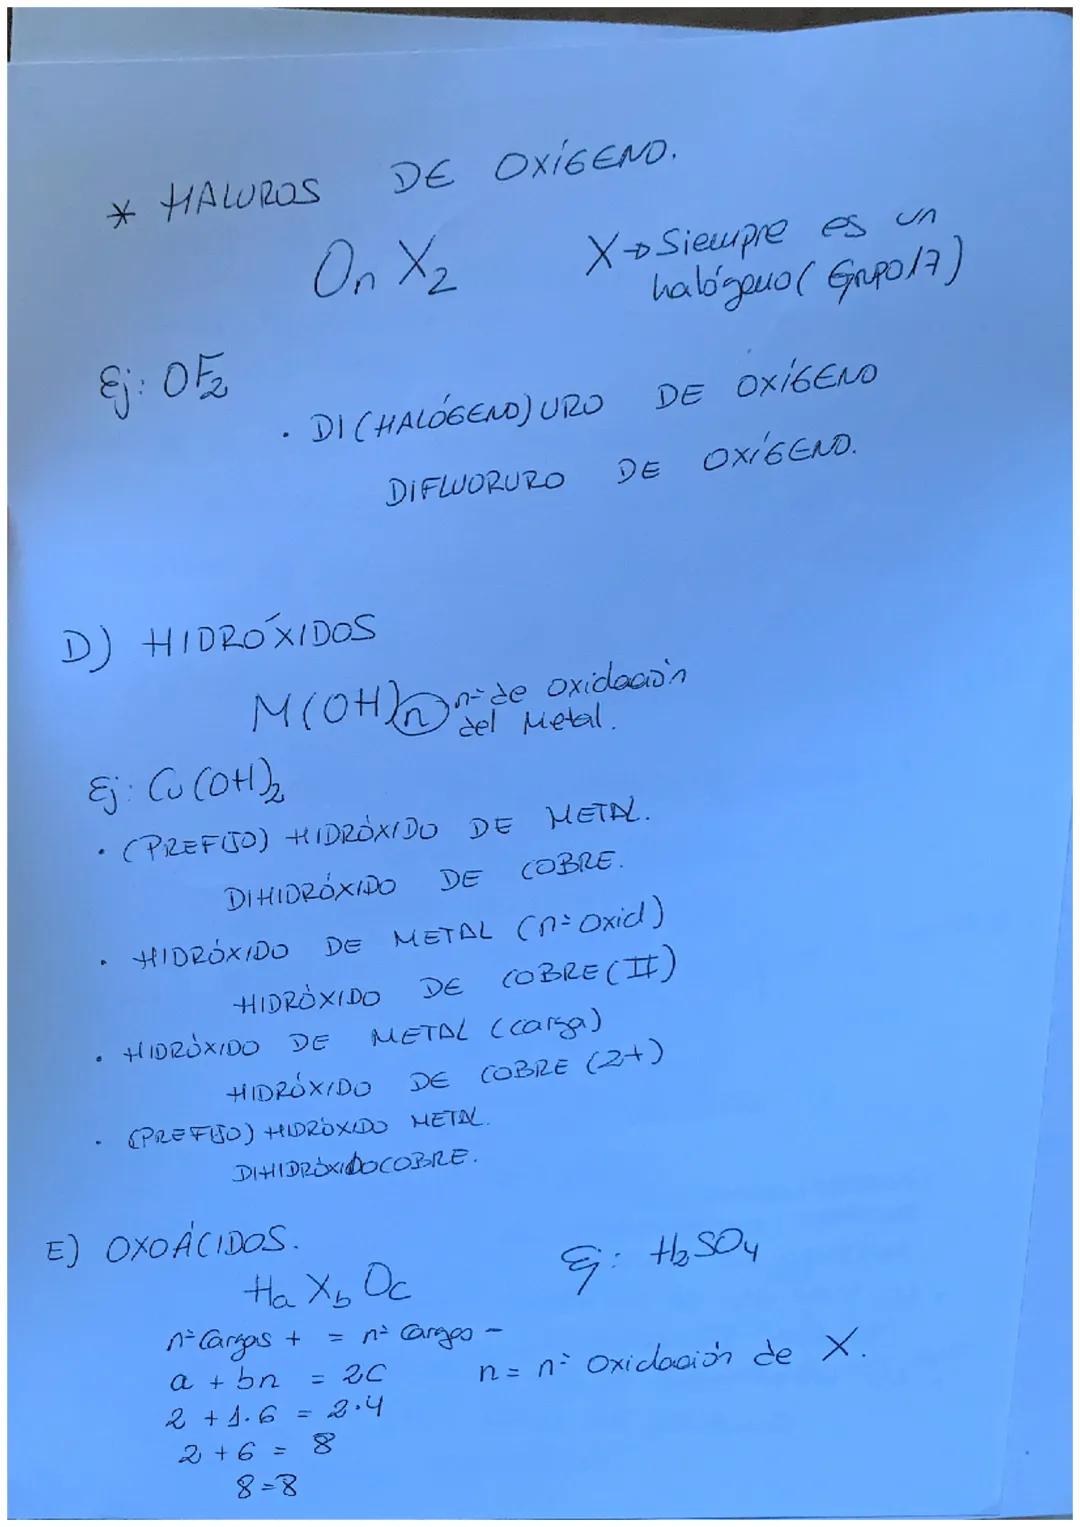 * HALUROS DE OXÍGENO.
On X2 X→Siempre es un
halógeno (Grupo 17)
Ej: OF2
· DI(HALÓGENO)URO DE OXÍGENO
DIFLUORURO DE OXÍGENO.
D) HIDRÓXIDOS
M(OH)n nº de oxidación
del Metal.
Ej: Cu(OH)2
· (PREFIJO) HIDRÓXIDO DE METAL.
DIHIDRÓXIDO DE COBRE.
· HIDRÓXIDO DE METAL (nº oxid)
HIDRÓXIDO DE COBRE (II)
· HIDRÓXIDO DE METAL (carga)
HIDRÓXIDO DE COBRE (2+)
· (PREFIJO) HIDRÓXIDO METAL.
DIHIDRÓXIDOCOBRE.
E) OXOÁCIDOS. Ej: H2SO4
Ha Xb Oc
nº Cargas + = nº Cargas -
a + bn = 2c n = nº oxidación de X.
2 + 1·6 = 2·4
2 + 6 = 8
8=8